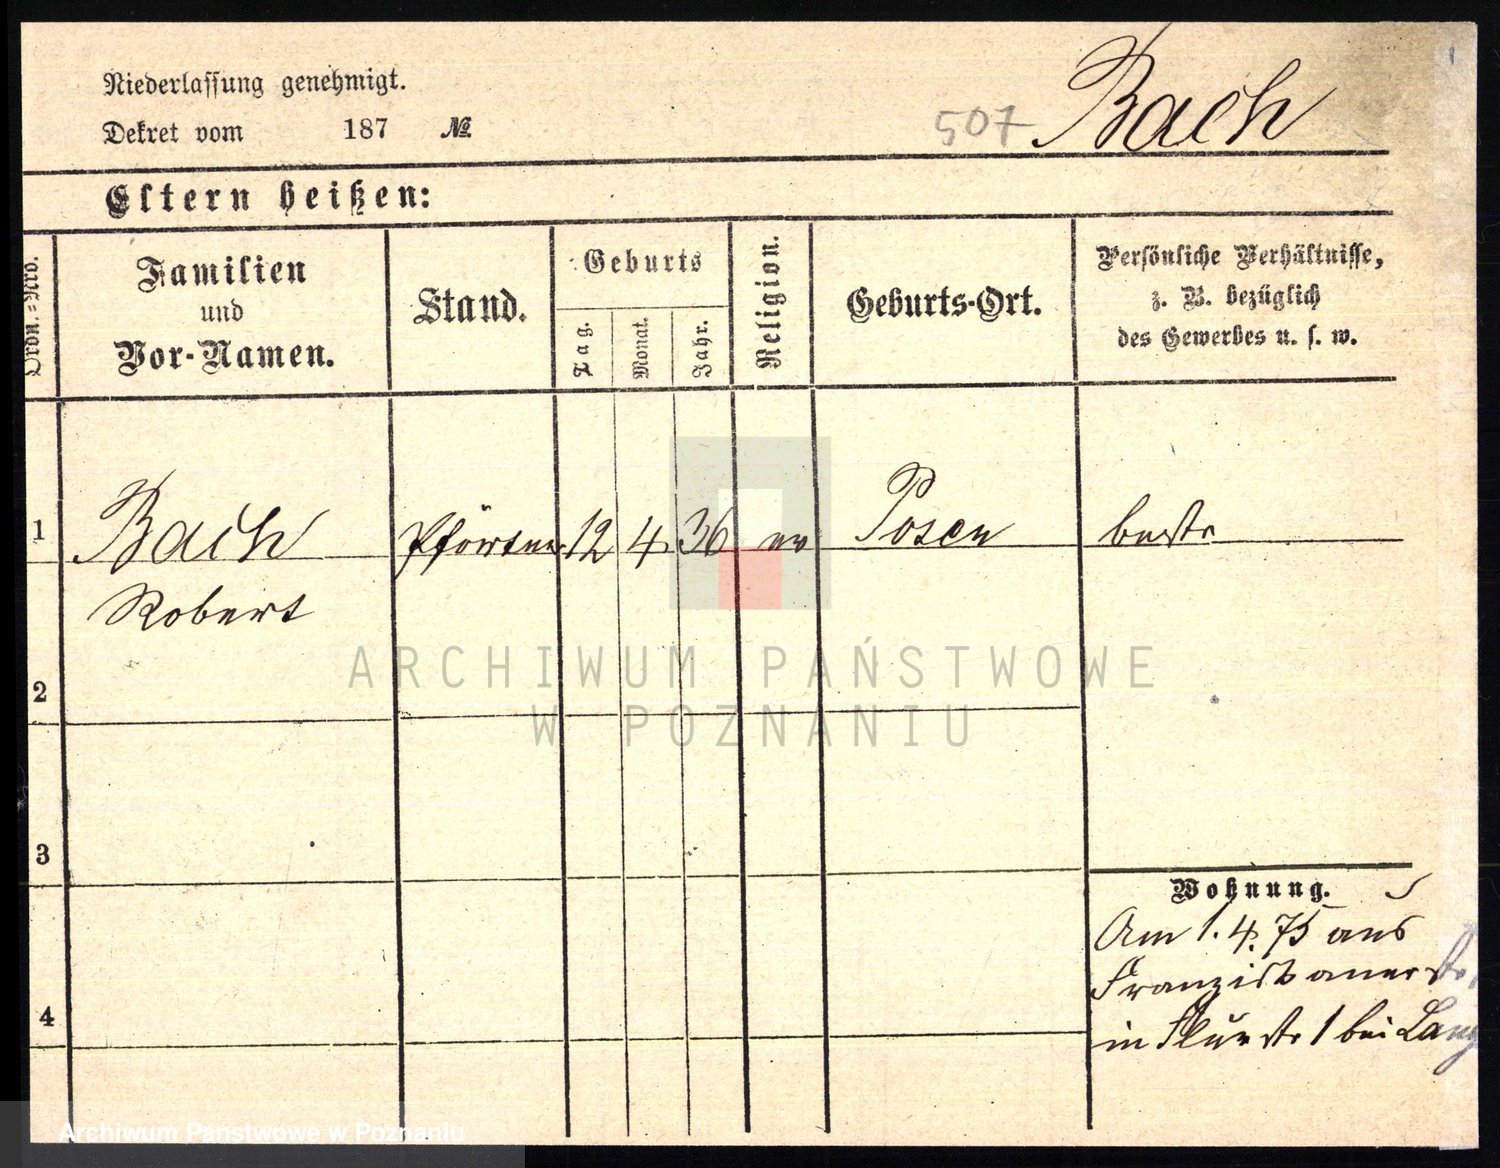 Niederlassung genehmigt.
Dekret vom 187 №
507 Bach
Eltern heißen:
Ordn.-Nro.
Familien
und
Vor-Namen.
Stand.
Geburts
Tag.
Monat.
Jahr.
Religion.
Geburts-Ort.
Persönliche Verhältnisse,
z. B. bezüglich
des Gewerbes u. s. w.
1 Bach Pförtner 12 4. 36 ev Posen bestr
Robert
ARCHIWUM PAŃSTWOWE
W POZNANIU
2
3
Wohnung.
Am 1. 4. 75 aus
Franziskanerstr.
in Flurstr 1 bei Lang
4
Archiwum Państwowe w Poznaniu